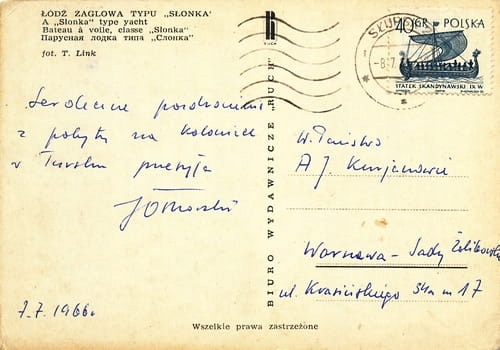 ŁÓDŹ ŻAGLOWA TYPU „SŁONKA”
A „Słonka” type yacht
Bateau à voile, classe „Slonka”
Парусная лодка типа „Слонка”
fot. T. Link
RUCH
SŁUP
-8.7
40 GR POLSKA
STATEK SKANDYNAWSKI IX W
Serdeczne pozdrowienia
z pobytu na kolonii
w
przesyła
7.7.1966r
BIURO WYDAWNICZE „RUCH”
W. Państwo
A J
Warszawa - Sady Żoliborskie
ul. Krasińskiego 34a m 17
Wszelkie prawa zastrzeżone